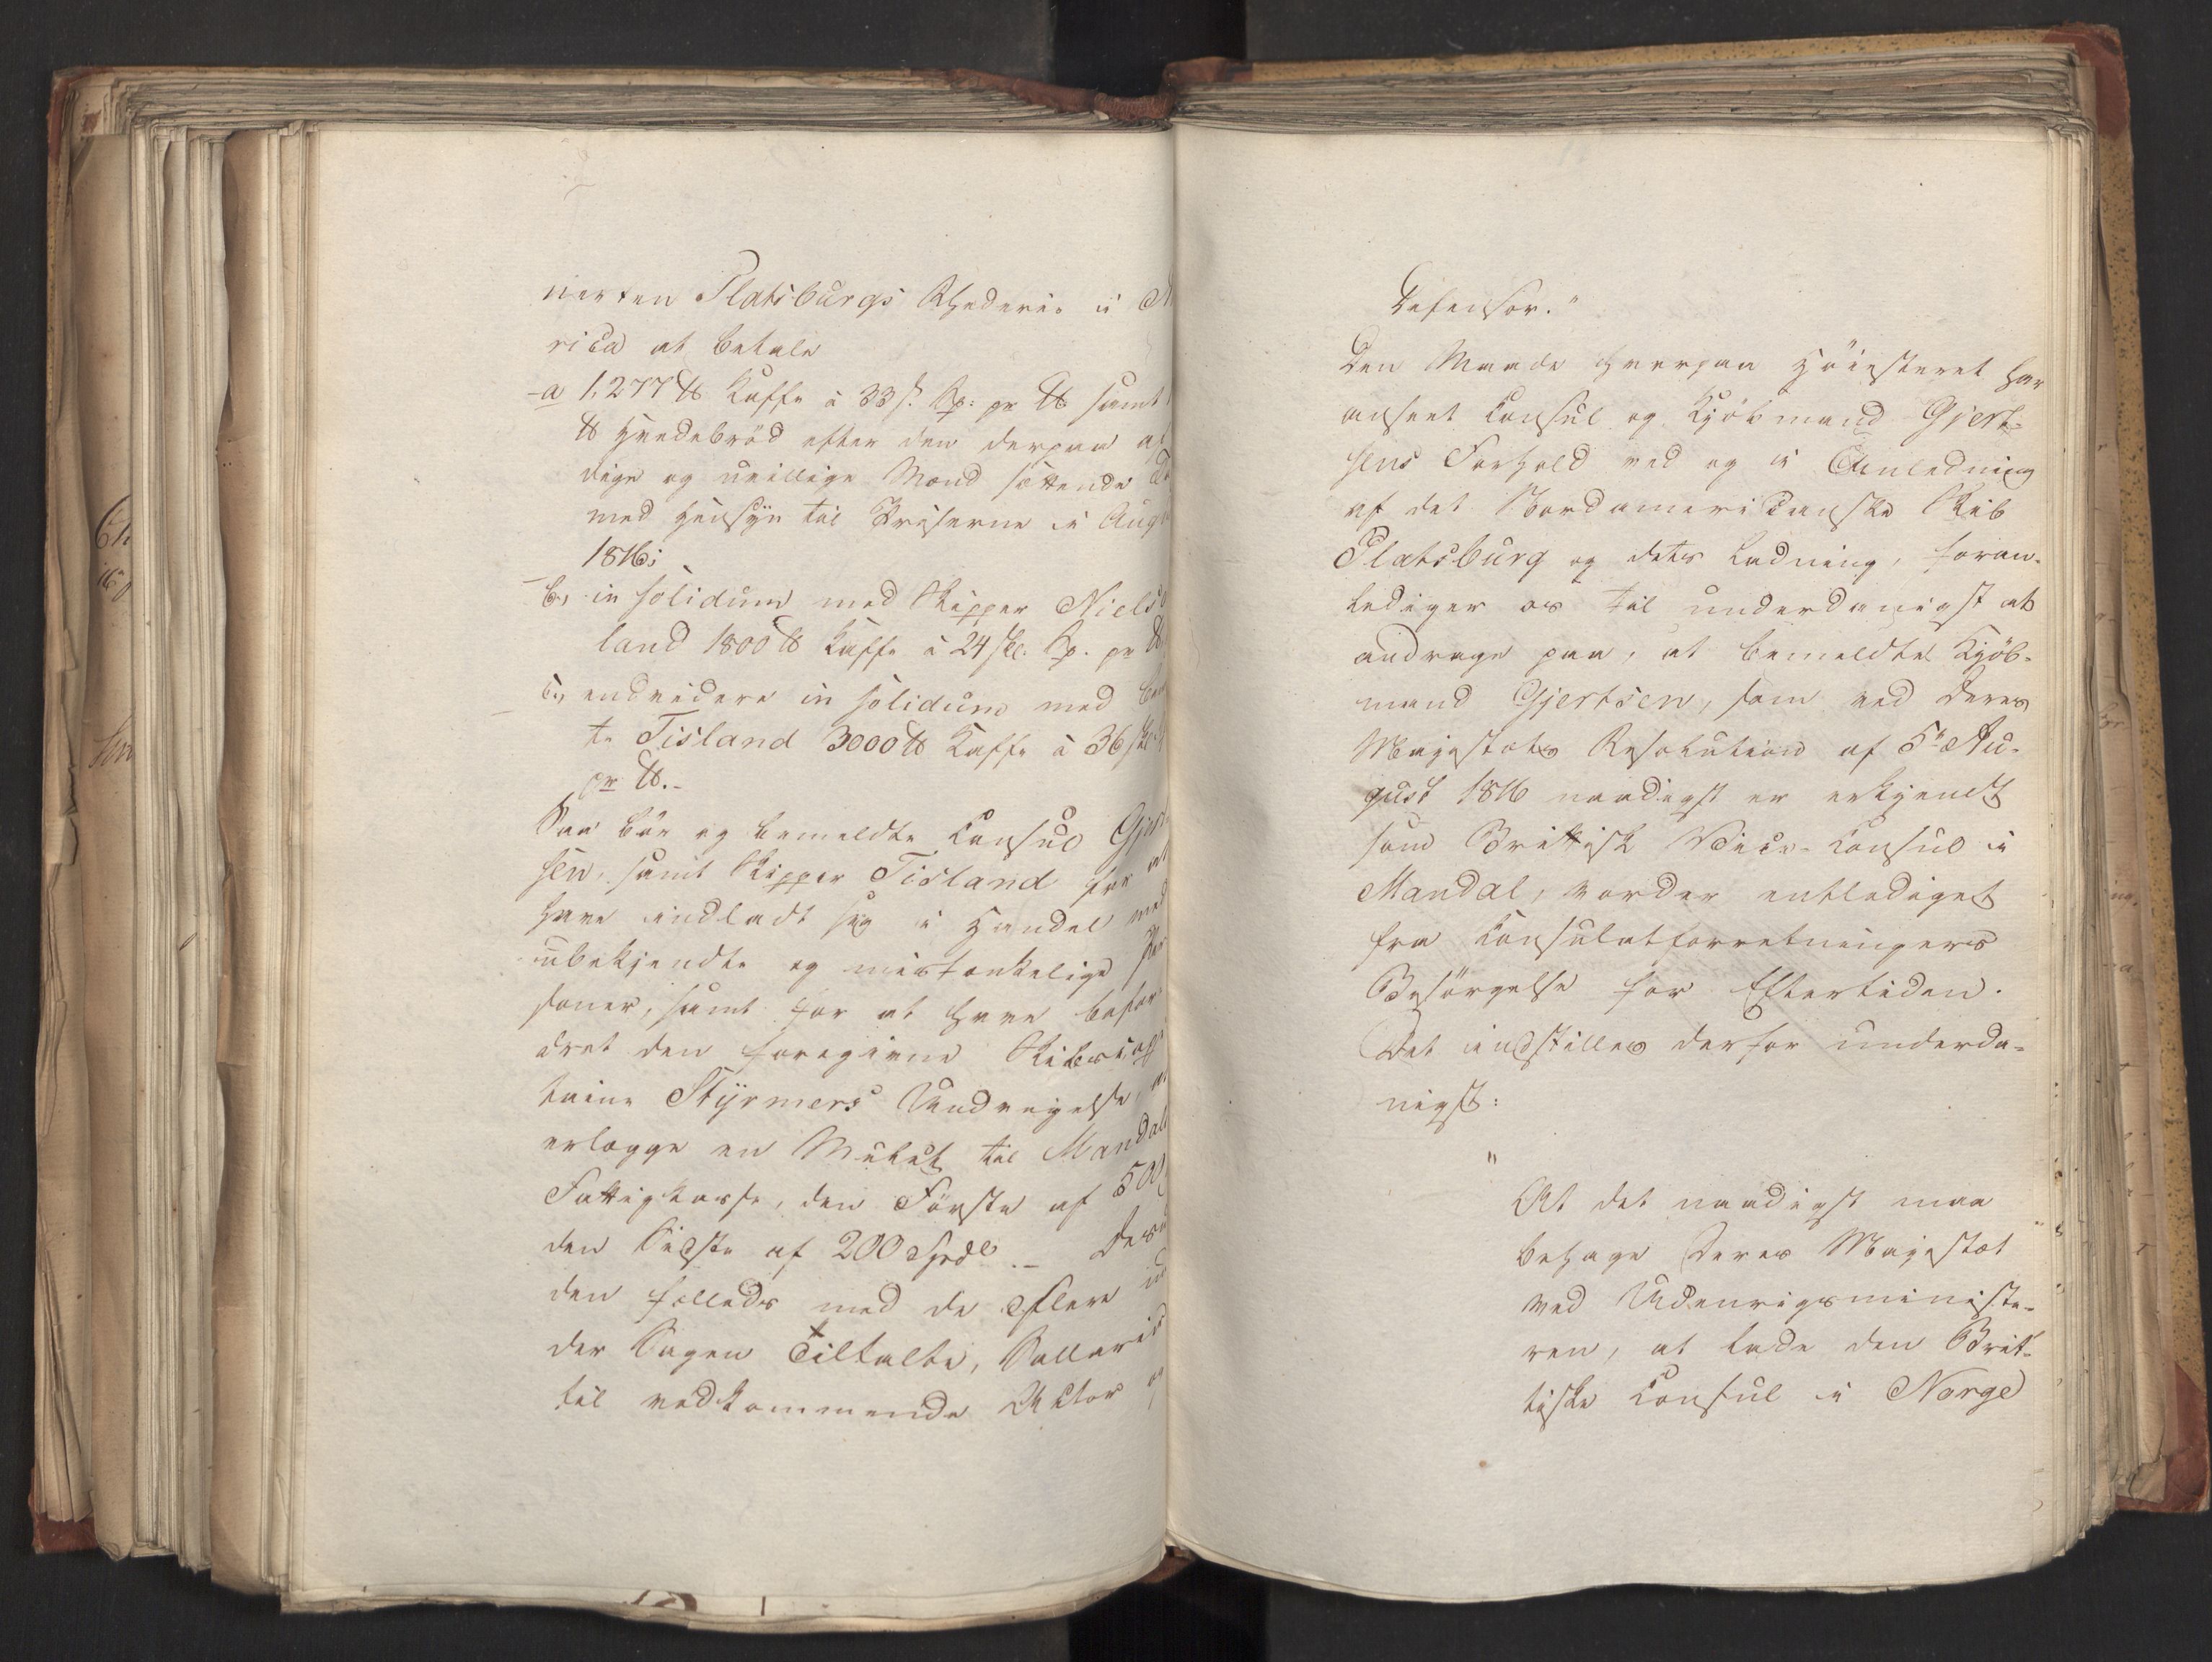 nerten Platsburgs Rhederie i
rica at betale
a 1,277 ℔ Kaffe à 33 s. Rp: pr ℔ samt
℔ Hvedebröd efter den derpaa af
dige og uvillige Mænd sættende
med Hensyn til Priserne i Aug
1816;
b, in solidum med Skipper Niels
land 1800 ℔ Kaffe à 24 sk. Rp. pr ℔
c, endvidere in solidum med be
te Tisland 3000 ℔ Kaffe à 36 sk
pr ℔.-
Saa bör og bemeldte Consul Gjert
sen, samt Skipper Tisland for at
have indladt sig i Handel med
ubekjendte og mistænkelige Per
soner, samt for at have befor
dret den foregivne Skibscap
taine Stÿrmers Undvigelse, at
erlægge en Mulct til Mandals
Fattigkasse, den Förste af 500
den Sidste af 200 Spdl. - Desu
den fælleds med de Flere un
der Sagen Tiltalte, Sallari
til vedkommende Actor og
Defensor."
Den Maade hvorpaa Höiesteret har
anseet Consul og Kjöbmand Gjert-
sens Forhold ved og i Anledning
af det Nordamericanske Skib
Platsburg og dets Ladning, foran-
lediger os til underdanigst at
andrage paa, at bemeldte Kjöb-
mand Gjertsen, som ved Deres
Majestæts Resolution af 5te Au-
gust 1816 naadigst er erkjendt
som Brittisk Vice-Consul i
Mandal, vorder entlediget
fra Consulatforretningers
Besörgelse for Eftertiden.
Det indstilles derfor underda-
nigst:
"
At det naadigst maa
behage Deres Majestæt
ved Udenrigsministe-
ren, at lade den Brit-
tiske Consul i Norge